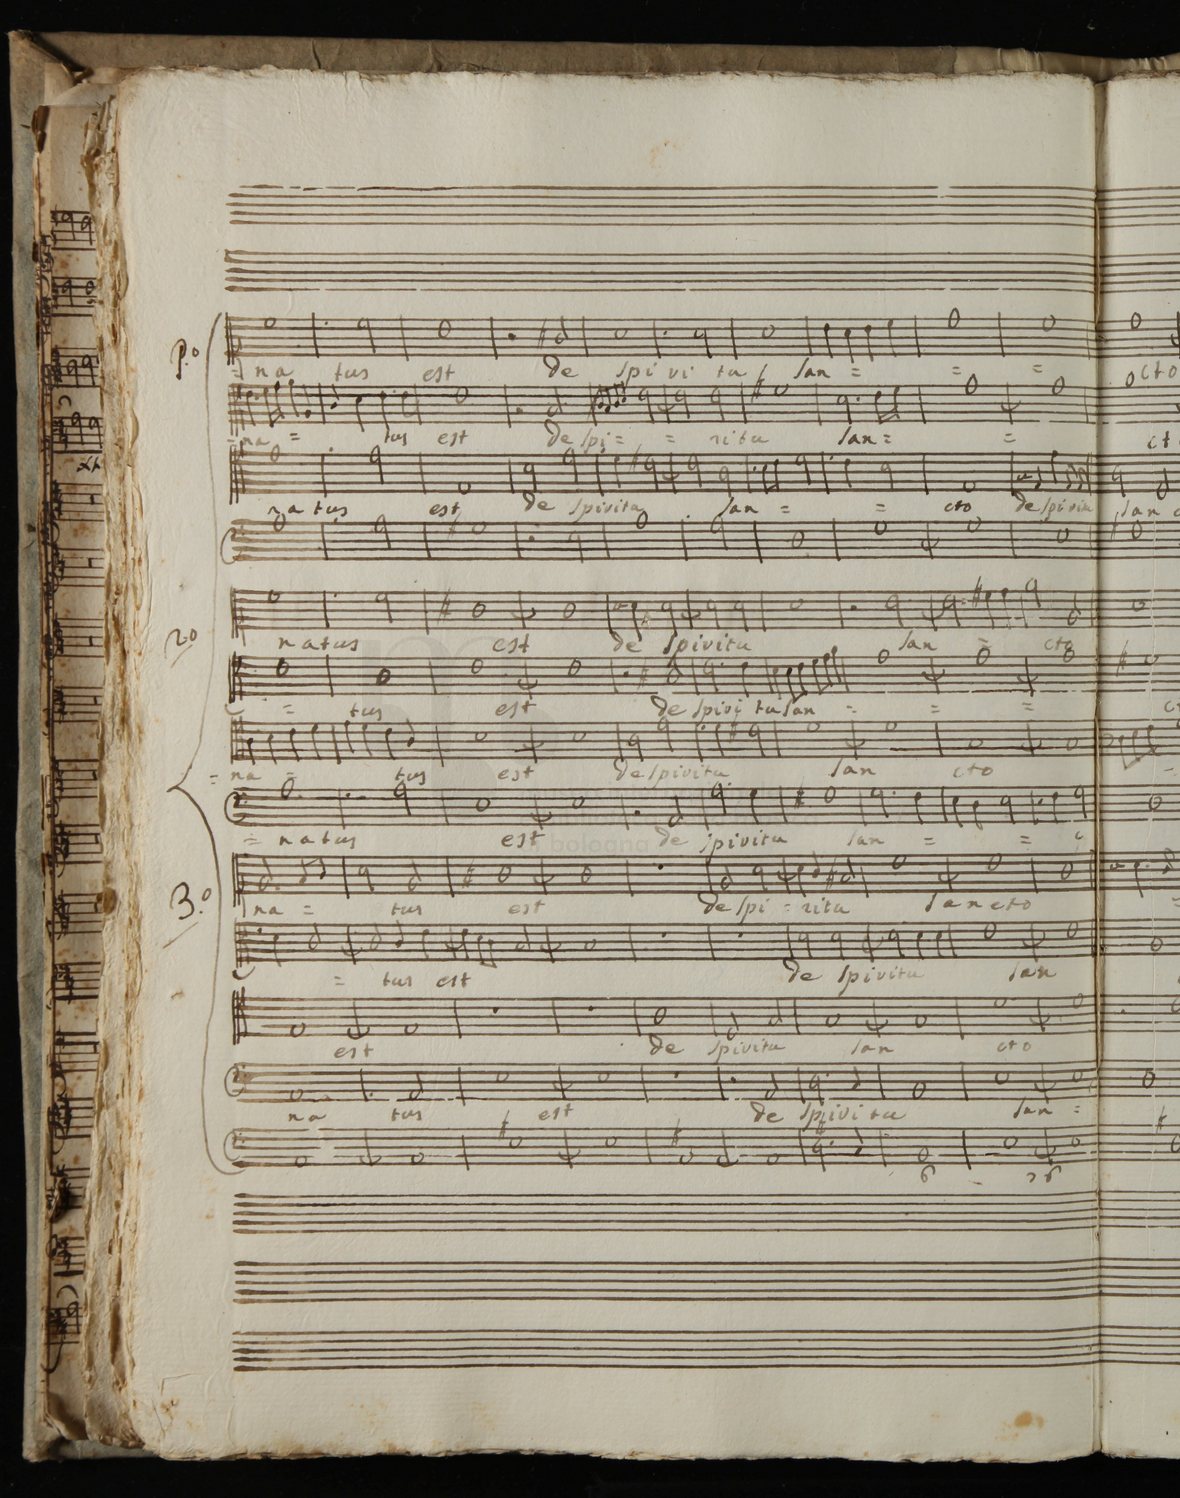 p.o
= na tus est de spi ri tu san = = = cto
= na = tus est de spi = = ritu san = = ct
natus est de spiritu san = = cto de spiritu san c
2.o
natus est de spiritu san = cto
= tus est de spiri tu san = = = c
= na = tus est de spiritu san cto
= natus est de spiritu san = =
3.o
na = tus est de spi = ritu san cto
= tus est de spiritu san
est de spiritu san cto
na tus est de spiri tu san =
6 6
bologna